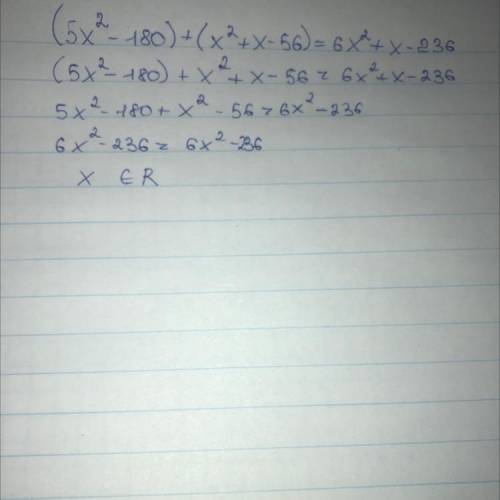 (5x²-180)+(x²+x-56)=6x²+x-236
(5x²-180)+x²+x-56=6x²+x-236
5x²-180+x²-56=6x²-236
6x²-236=6x²-236
x ∈ R